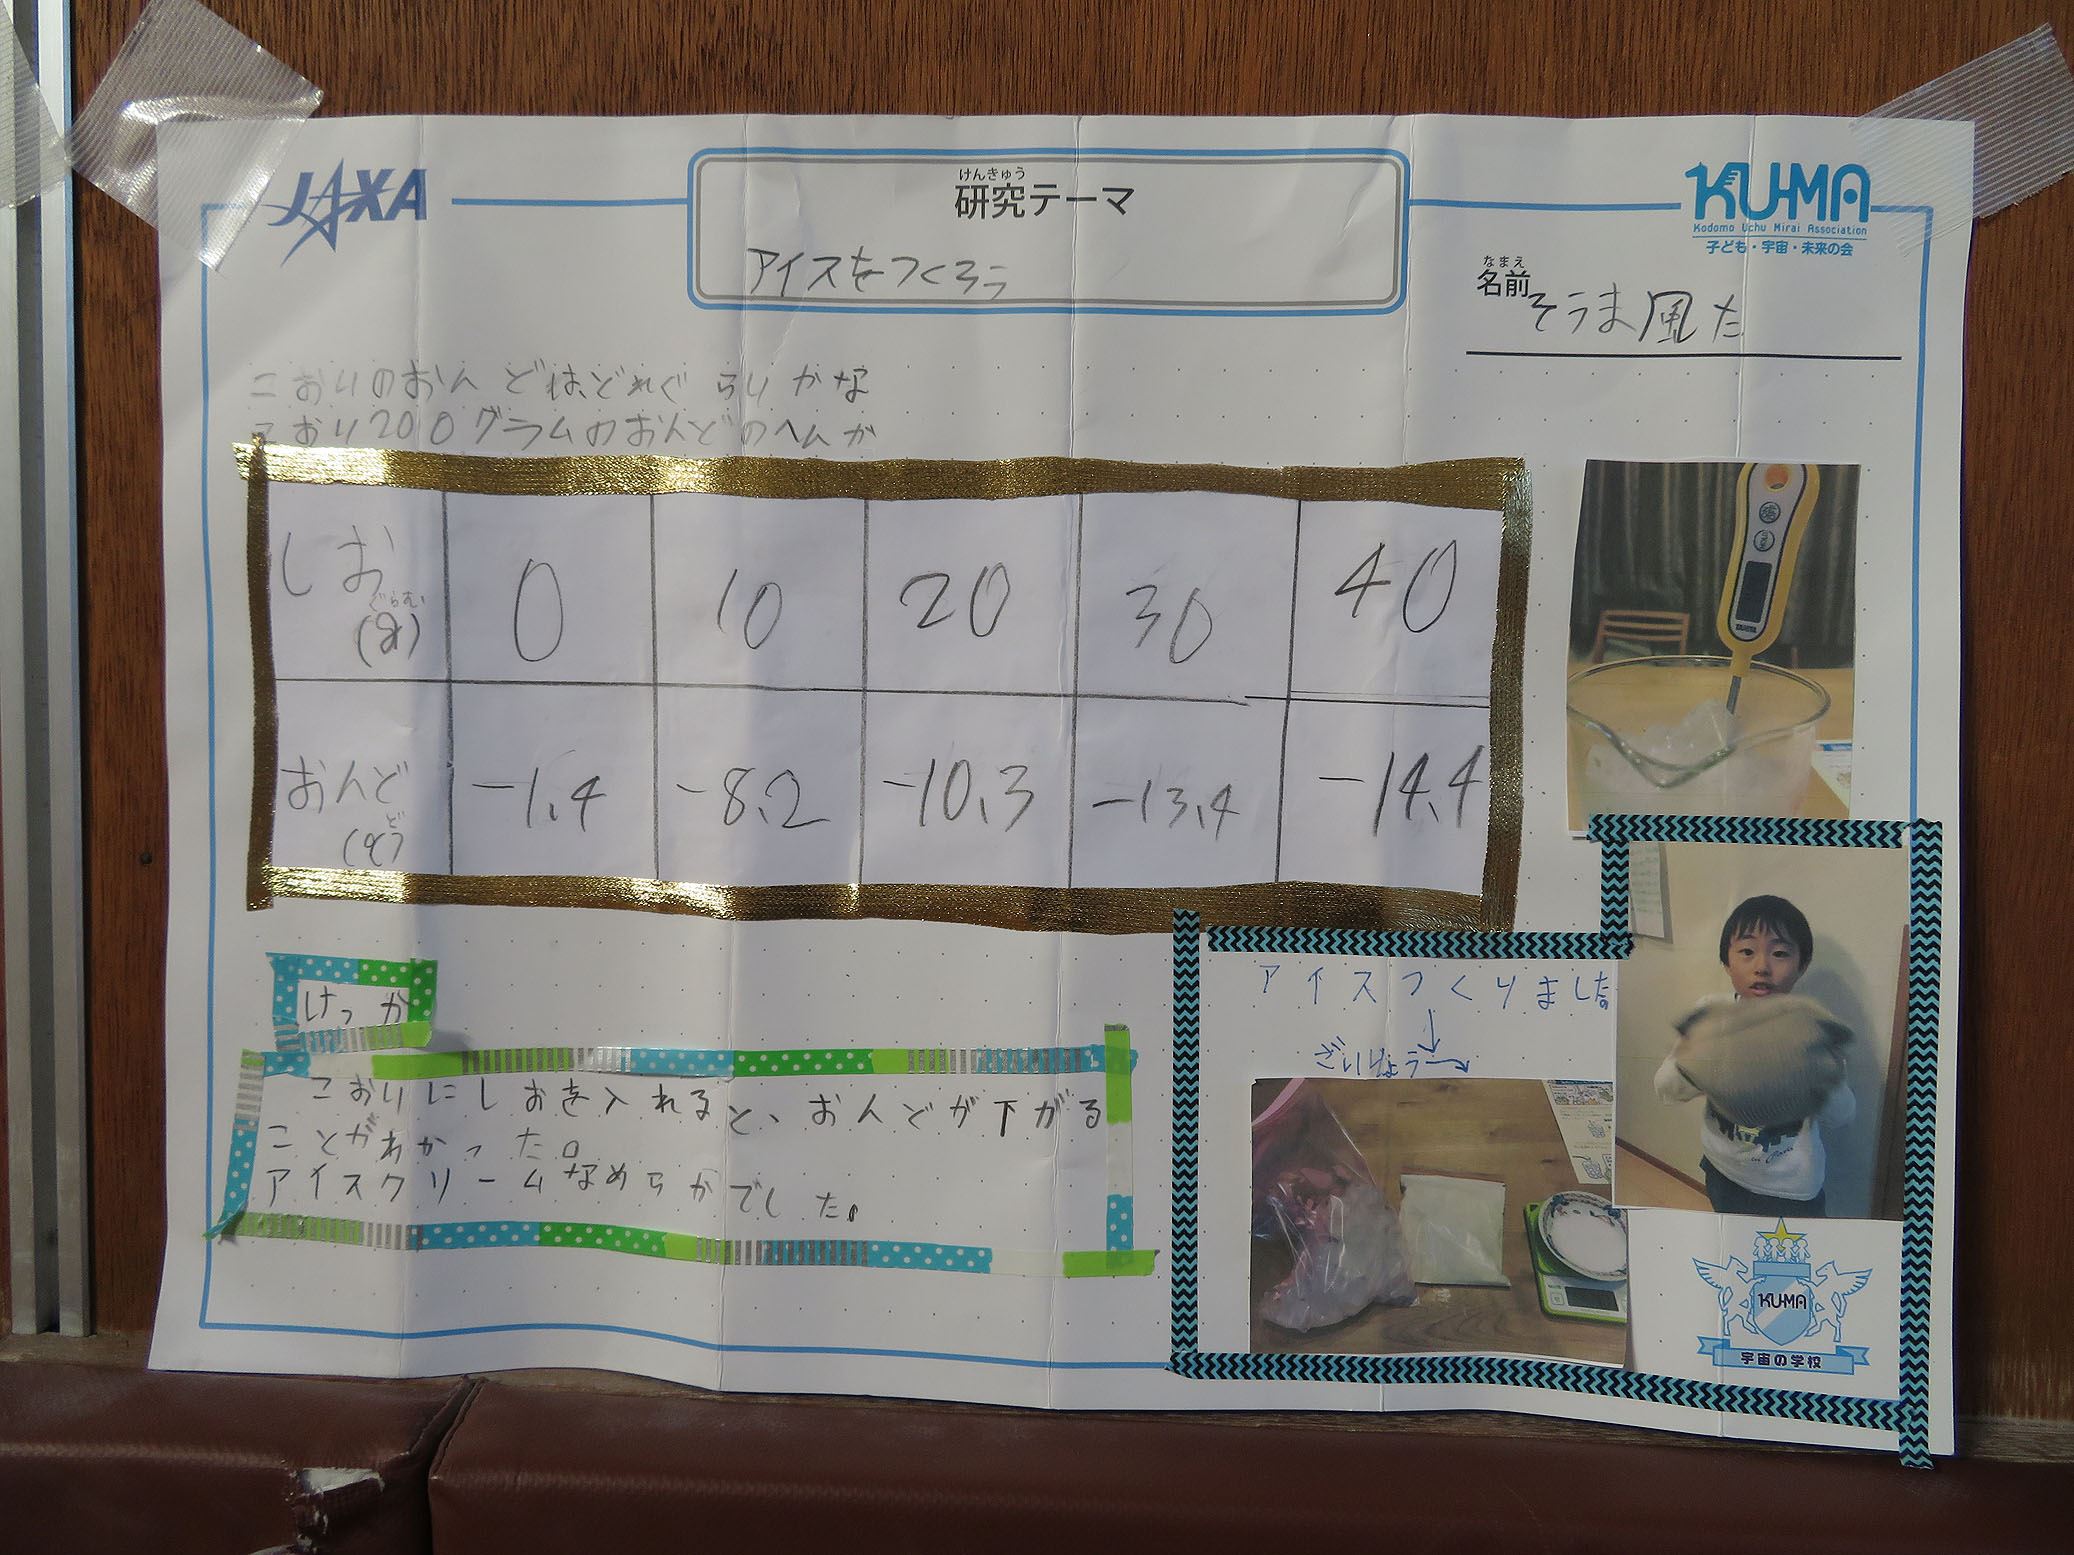 JAXA
けんきゅう
研究テーマ
アイスをつくろう
KU-MA
Kodomo Uchu Mirai Association
子ども・宇宙・未来の会
なまえ
名前 そうま風た
こおりのおんどは、どれぐらいかな
こおり200グラムのおんどのへんか
しお 0 10 20 30 40
ぐらむ
(g)
おんど -1.4 -8.2 -10.3 -13.4 -14.4
ど
(℃)
けっか
こおりにしおを入れると、おんどが下がる
ことがわかった。
アイスクリームなめらかでした。
アイスつくりました。
ざいりょう
KU-MA
宇宙の学校